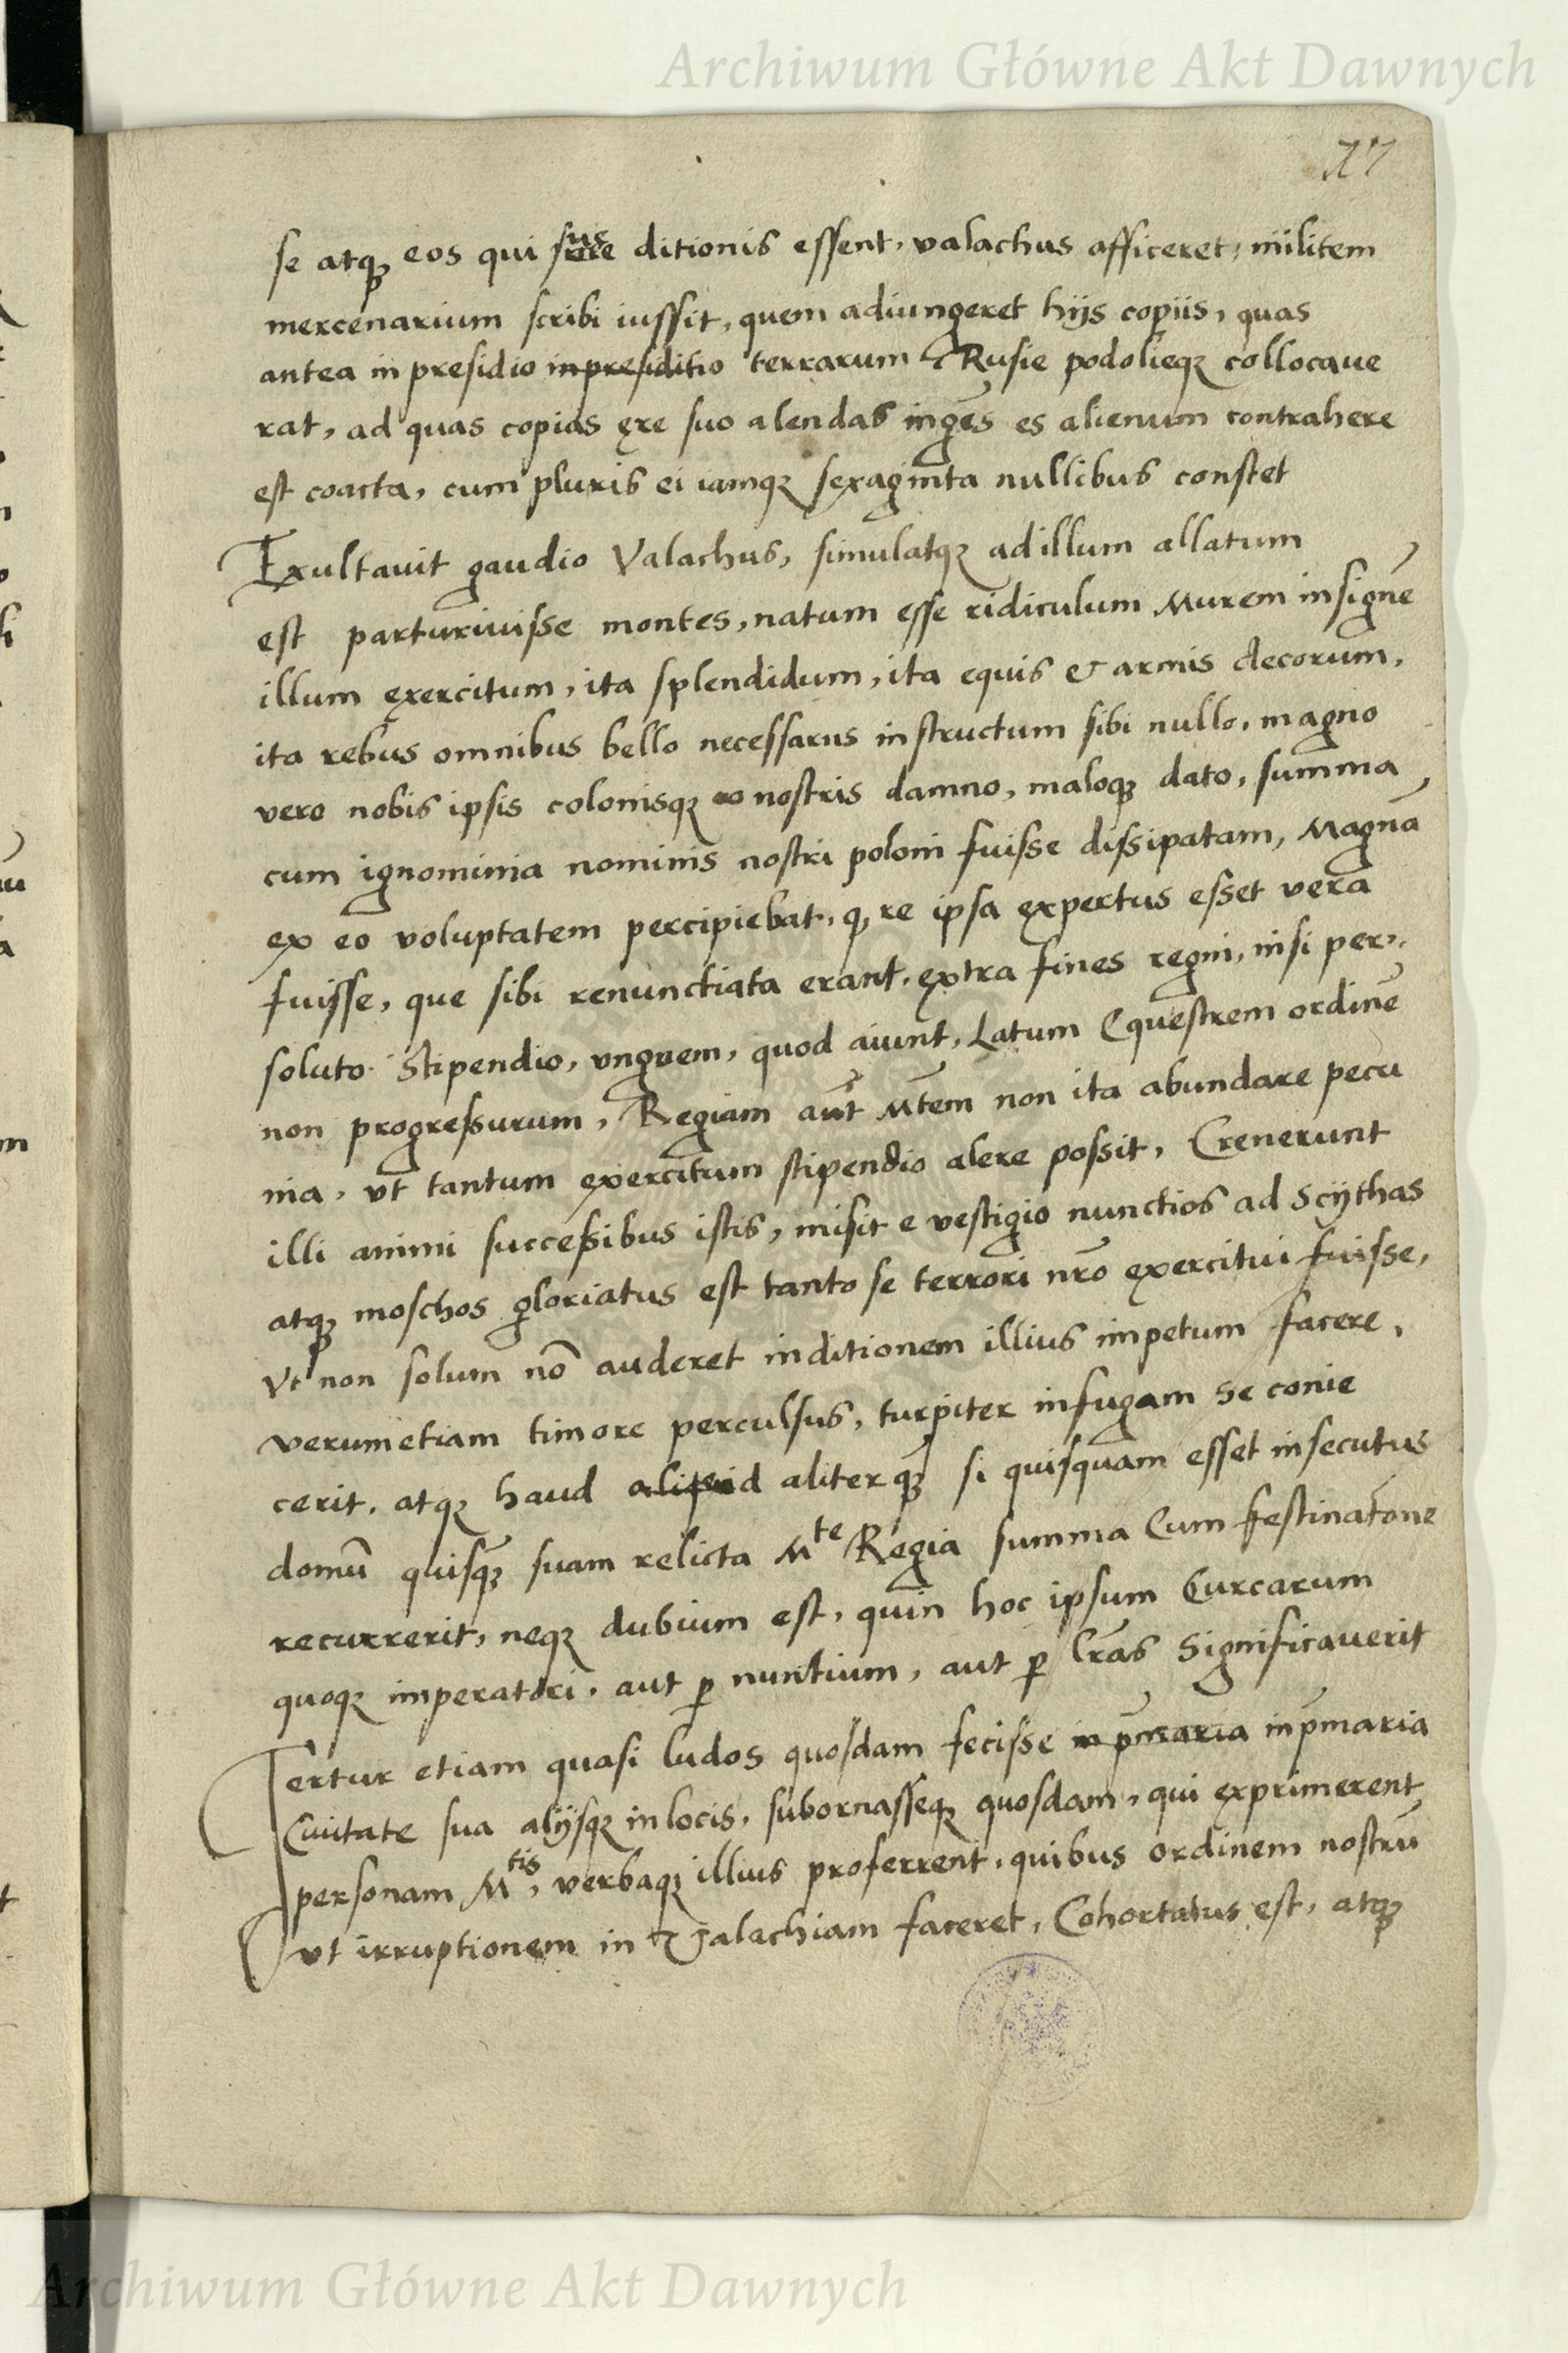 Archiwum Główne Akt Dawnych
se atqꝫ eos qui sue ditionis essent, valachus afficeret, militem
mercenarium scribi iussit, quem adiungeret hijs copiis, quas
antea in presidio inpresiditio terrarum Rusie podolieqꝫ collocaue
rat, ad quas copias ęre suo alendas ingēs es alienum contrahere
est coacta, cum pluris ei iamqꝫ sexaginta nullibus constet
Exultauit gaudio Valachus, simulatqꝫ ad illum allatum
est parturiuisse montes, natum esse ridiculum Murem insignē
illum exercitum, ita splendidum, ita equis & armis decorum,
ita rebus omnibus bello necessariis instructum sibi nullo, magno
vero nobis ipsis colonisqꝫ nostris damno, maloqꝫ dato, summa
cum ignominia nominis nostri poloni fuisse dissipatam, Magnā
ex eo voluptatem percipiebat, qꝫ re ipsa expertus esset vera
fuisse, que sibi renunctiata erant, extra fines regni, nisi per
soluto Stipendio, vnguem, quod aiunt, Latum Equestrem ordinē
non progressurum, Regiam aūt Mtem non ita abundare pecu
nia, vt tantum exercitum stipendio alere possit, Creuerunt
illi animi successibus istis, misit e vestigio nunctios ad Scythas
atqꝫ moschos gloriatus est tanto se terrori nr̄o exercitui fuisse,
Vt non solum nō auderet inditionem illius impetum facere,
verumetiam timore perculsus, turpiter infugam se conie
cerit, atqꝫ haud aliquid aliter qꝫ̄ si quisquam esset insecutus
domū quisqꝫ suam relicta Mte Regia summa Cum festinatōne
recurrerit, neqꝫ dubium est, quin hoc ipsum Turcarum
quoqꝫ imperatori, aut ꝑ nuntium, aut ꝑ lr̄as Significauerit
Fertur etiam quasi ludos quosdam fecisse in pm̄aria inpm̄aria
Ciuitate sua alijsqꝫ inlocis, subornasseqꝫ quosdam, qui exprimerent
personam Mtis, verbaqꝫ illius proferrent, quibus ordinem nostrū
vt irruptionem in Valachiam faceret, Cohortatus est, atqꝫ
Archiwum Główne Akt Dawnych